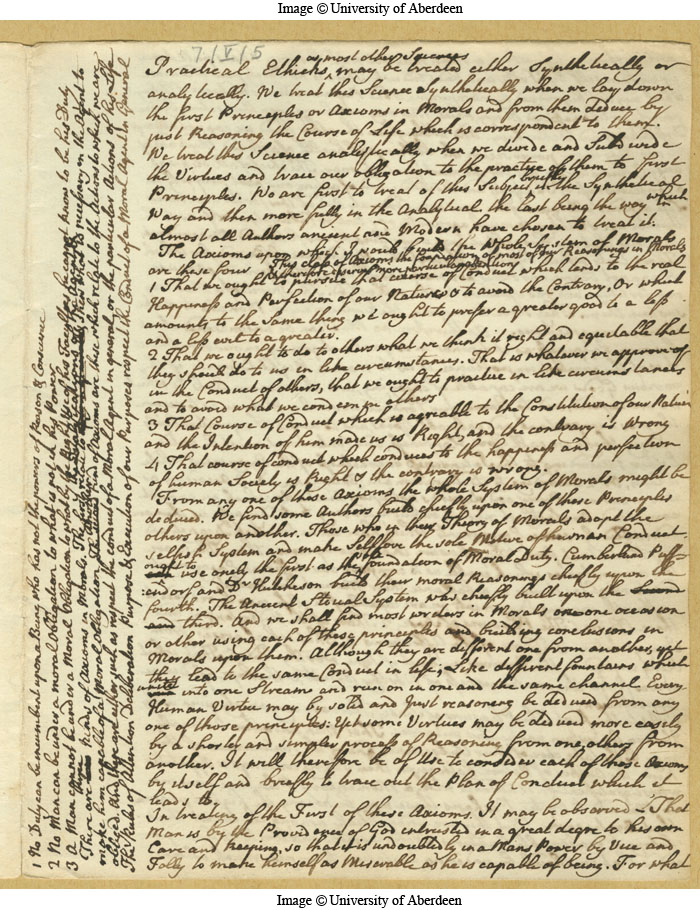 Image © University of Aberdeen
7/V/5
as most other Sciences
Practical Ethicks, may be treated either Synthetically or
analytically. We treat this Science Synthetically when we lay down
the first Principles or Axioms in Morals and from them deduce by
just Reasoning the Course of Life which is correspondent to them.
We treat this Science analytically when we divide and Subdivide
the Virtues and trace our obligation to the practice of them to first
Principles. We are first to treat of this Subject briefly in the Synthetical
Way and then more fully in the Analytical the last being the way in which
almost all Authors ancient and Modern have chosen to treat it.
The Axioms upon which I would build the whole System of Morals
are these four
This class of Axioms the foundation of most of our Reasonings in Morals
1 That we ought to pursue that course of Conduct which tends to the real
Happiness and Perfection of our Nature & to avoid the Contrary, Or which
amounts to the Same thing we ought to prefer a greater good to a less
and a less evil to a greater.
2 That we ought to do to others what we think it right and equitable that
they should do to us in like circumstances. That is whatever we approve of
in the Conduct of others, that we ought to practice in like circumstances
and to avoid what we condemn in others
3 That Course of Conduct which is agreable to the Constitution of our Nature
and the Intention of him made us is Right, and the contrary is Wrong
4 That course of conduct which conduces to the happiness and perfection
of human Society is Right & the contrary is wrong.
From any one of these Axioms the whole System of Morals might be
deduced. We find some Authors build chiefly upon one of these Principles
others upon another. Those who in their Theory of Morals adopt the
selfish System and make Selflove the sole Motive of human Conduct
ought to use onely the first as the foundation of Moral Duty. Cumberland Puff-
endorf and Dr Hutcheson build their moral Reasonings chiefly upon the
fourth. The Ancient Stoical System was chiefly built upon the Second
and third. And we shall find most writers in Morals one occasion
or other using each of these principles and building conclusions in
Morals upon them. Although they are different one from another, yet
they lead to the same Conduct in life; Like different fountains which
unite into one Streams and run on in one and the same channel Every
Human Virtue may by solid and Just reasoning be deduced from any
one of those principles: Yet some Virtues may be deduced more easily
by a shorter and simpler process of Reasoning from one, others from
another. It will therefore be of Use to consider each of those Axioms
by itself and briefly to trace out the Plan of Conduct which it
leads to
In treating of the First of these Axioms. It may be observed 1 That
Man is by the Providence of God intrusted in a great degree to his own
Care and keeping, so that it is undoubtedly in a Mans Power by Vice and
Folly to make himself as Miserable as he is capable of being. For what
1 No Duty can be incumbent upon a Being who has not the powers of Reason & Conscience
2 No Man can be under a moral Obligation to what is not in his Power
3 A man cannot be under a Moral Obligation to what by the Right use of his Faculties he cannot know to be his Duty
There are kinds of Axioms in Morals. The first relate to what is necessary in the Agent to
make him capable of a Moral Obligation. The second kind of Axioms are those which relate to the Actions to which we are
obliged. And these are either such as respect the conduct of a Moral Agent in general or the particular Actions of his Life
The Rules of Attention Deliberation Purpose & Execution of our Purposes respect the Conduct of a Moral Agent in General
Image © University of Aberdeen